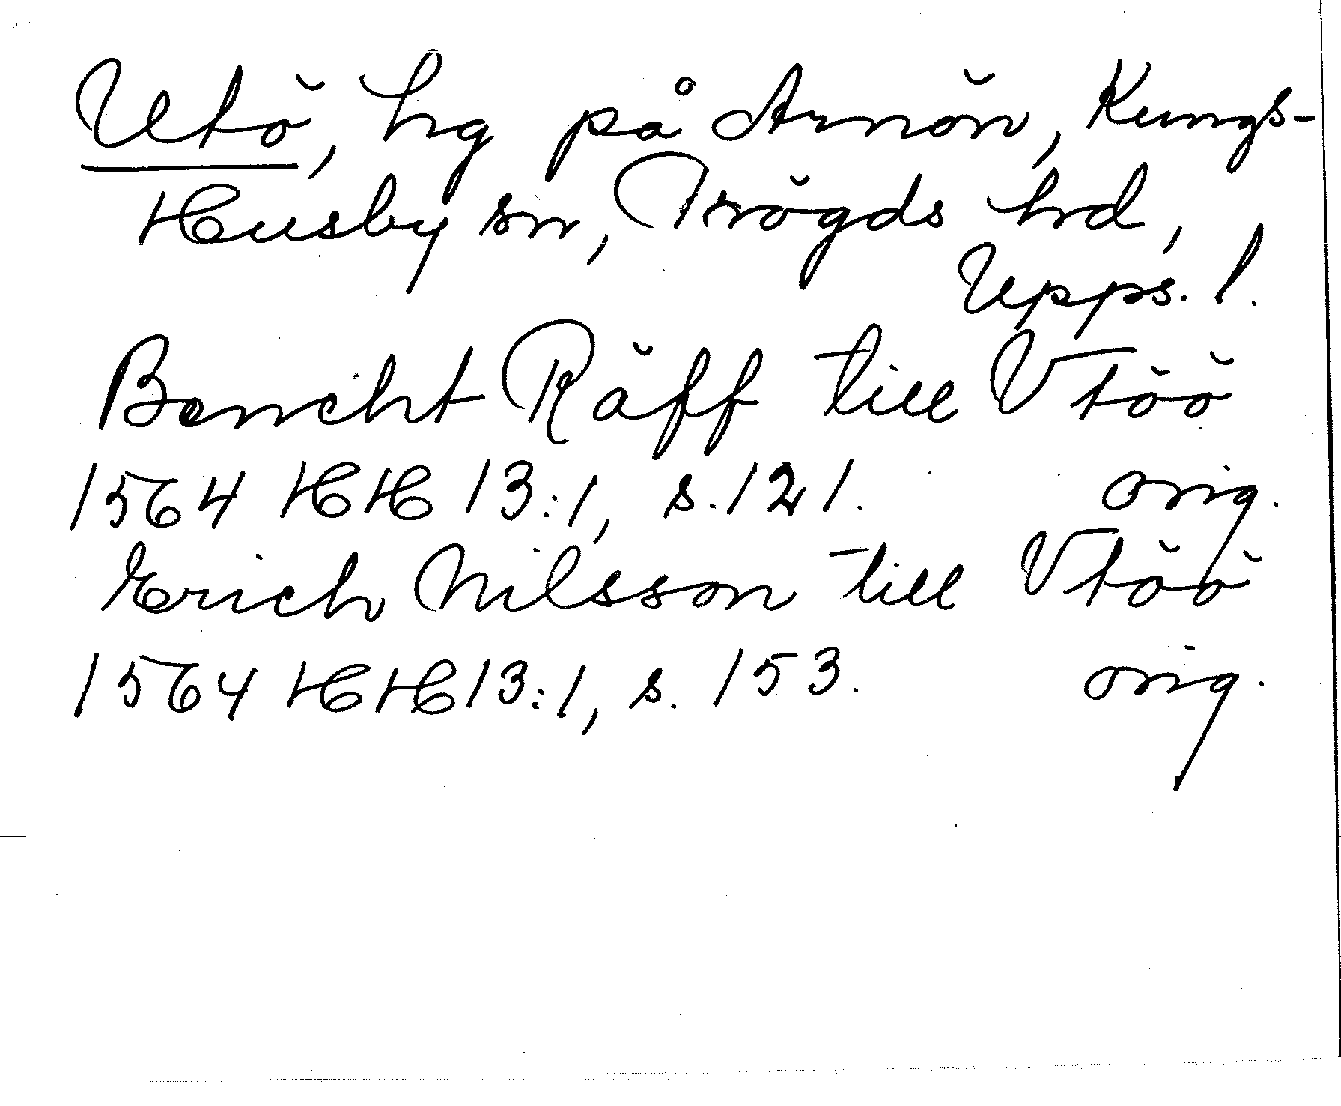 Utö, hg på Arnön, Kungs-
Husby sn, Trögds hd,
Upps. l.
Bencht Räff till Vtöö
1564 HH 13:1, s. 121. orig.
Erich Nilsson till Vtöö
1564 HH 13:1, s. 153. orig.